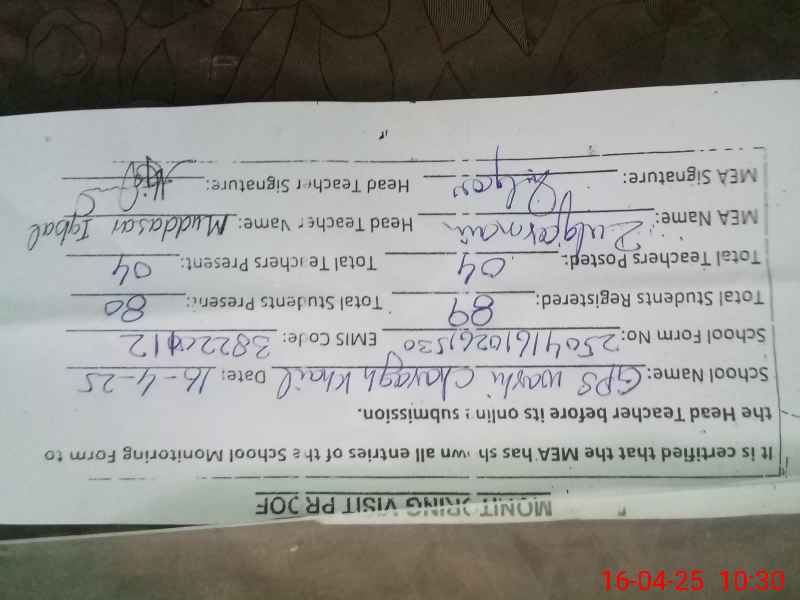 MONITORING VISIT PROOF
It is certified that the MEA has shown all entries of the School Monitoring Form to
the Head Teacher before its online submission.
School Name: GPS washi Charagh Khail Date: 16-4-25
School Form No: EMIS Code:
Total Students Registered: 89 Total Students Present: 80
Total Teachers Posted: 04 Total Teachers Present: 04
MEA Name: Head Teacher Name: Muddasar Iqbal
MEA Signature: Head Teacher Signature:
16-04-25 10:30